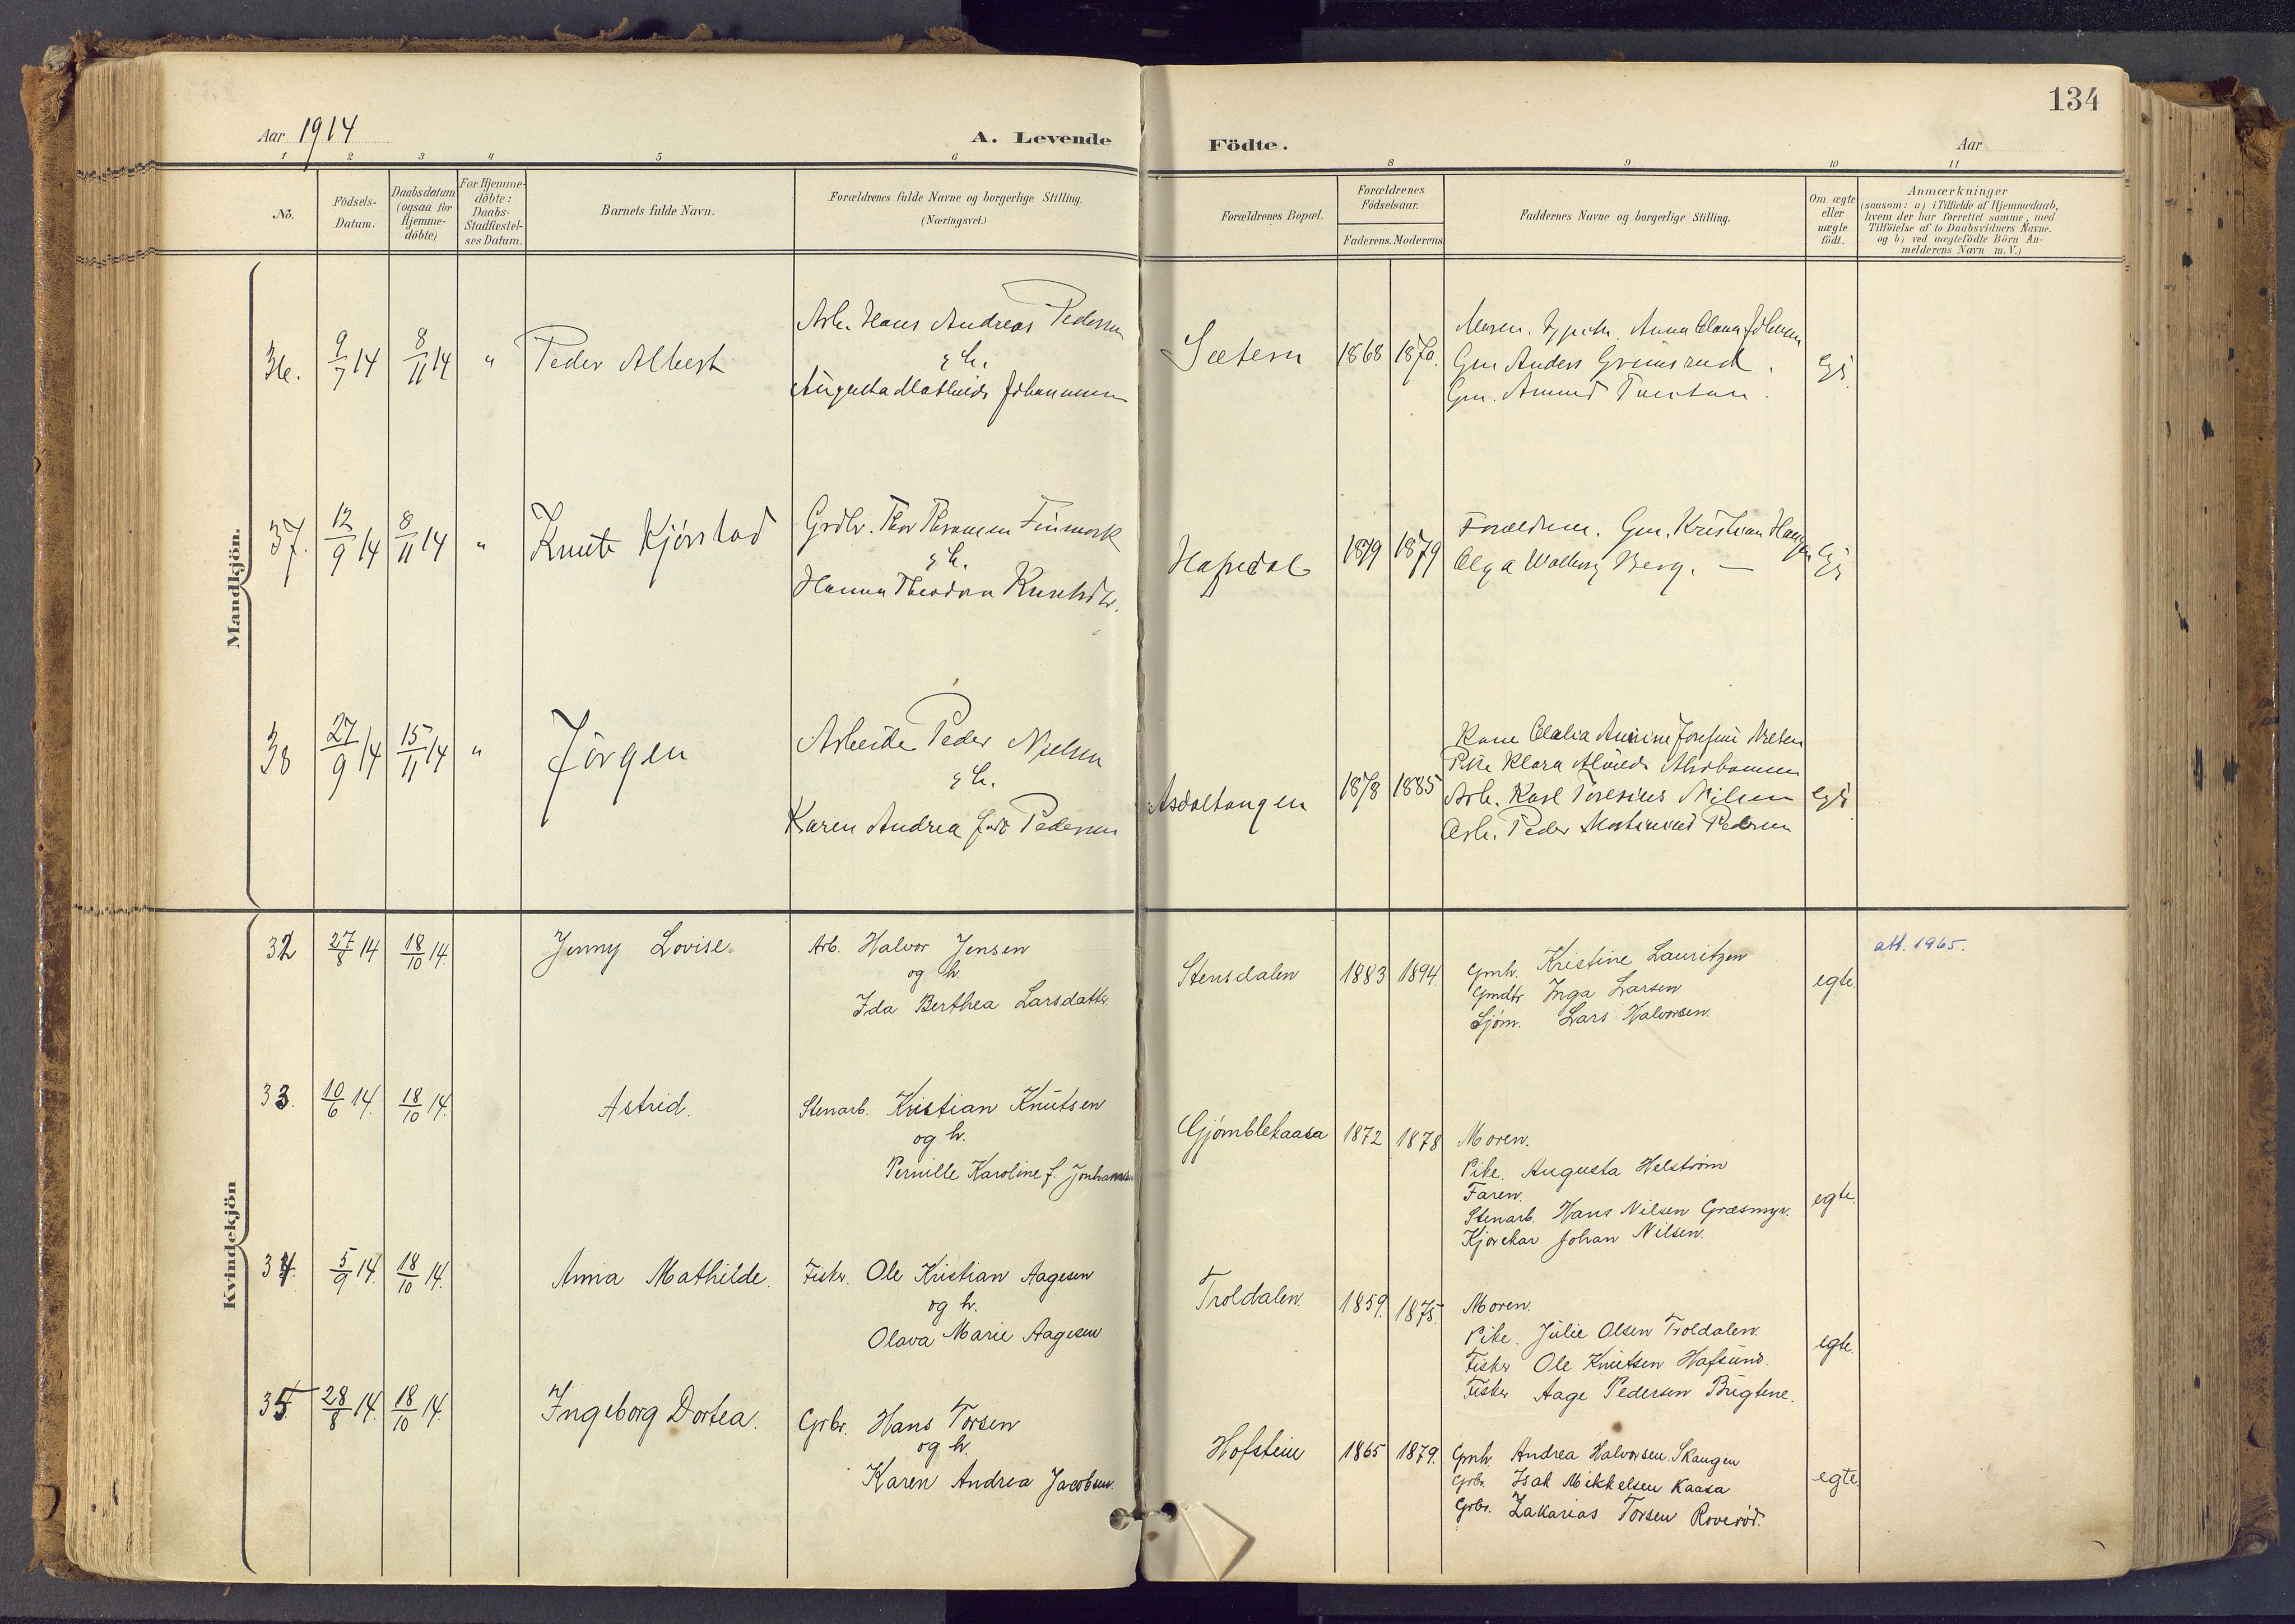 134
Aar 1914
A. Levende
Födte.
Aar
1 2 3 4 5 6 8 9 10 11
No.
Födsels-
Datum.
Daabsdatum
(ogsaa for
Hjemme-
döbte)
For Hjemme-
döbte:
Daabs-
Stadfæstel-
ses Datum.
Barnets fulde Navn.
Forældrenes fulde Navne og borgerlige Stilling.
(Næringsvei.)
Forældrenes Bopæl.
Forældrenes
Födselsaar.
Faderens. Moderens
Faddernes Navne og borgerlige Stilling.
Om ægte
eller
uægte
födt.
Anmærkninger
(saasom: a) i Tilfælde af Hjemmedaab,
hvem der har forrettet samme, med
Tilföielse af to Daabsvidners Navne.
og b) ved uægtefödte Börn An-
melderens Navn m. V.)
Mandkjön.
36. 9/7 14 8/11 14 " Peder Albert
Arb. Hans Andreas Pedersen
& h.
Augusta Mathilde Johannesen
Sætern 1868 1870.
Moren. Anna
Gm Anders Grimsrud.
Gm.
37. 12/9 14 8/11 14 " Knut Kjörstad
Grdbr. Thor Thoresen Finmark
& h.
Hanna Theodora Knutsdtr.
Hafsdal 1879 1879
Forældrene. Gm. Kristian Haugen
Olga Walborg Berg. —
38 27/9 14 15/11 14 " Jörgen
Arbeider Peder Nielsen
& h.
Karen Andrea født Pedersen
Asdaltangen 1878 1885
Kone Josefine Nielsen
Pike Klara Alvilde
Arb. Karl Nilsen
Arb. Peder Pedersen
Kvindekjön
32 27/8 14 18/10 14. Jenny Lovise.
Arb. Halvor Jensen
og h.
Ida Berthea Larsdatter
Stensdalen 1883 1894.
Gmh. Kristine Lauritzen
Gmdtr Inga Larsen
Sjøm. Lars Halvorsen.
egte.
att. 1965.
33. 10/6 14. 18/10 14. Astrid.
Stenarb. Kristian Knutsen
og h.
Pernille Karoline f. Jonhansen
Gjømblekaasa 1872 1878
Moren.
Pike. Augusta Helström
Faren.
Stenarb. Hans Nilsen Græsmyr.
Kjørekar Johan Nilsen.
egte.
34. 5/9 14. 18/10 14. Anna Mathilde.
Fisker. Ole Kristian Aagesen
og h.
Olava Marie Aagesen
Troldalen. 1859. 1875.
Moren.
Pike. Julie Olsen Troldalen.
Fisker Ole Knutsen Hafsund.
Fisker Aage Pedersen Brigtene.
egte.
35. 28/8 14. 18/10 14. Ingeborg Dortea.
Grbr. Hans Torsen
og h.
Karen Andrea Jacobsen.
Hofstein 1865 1879.
Gmh Andrea Halvorsen Skaugen
Grbr. Isak Mikkelsen Kaasa
Grbr. Zakarias Torsen Roverød.
egte